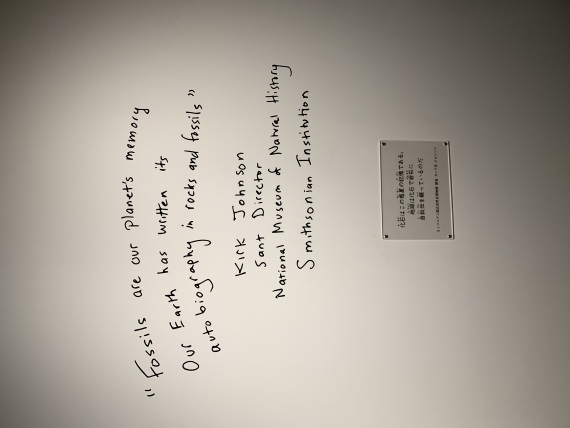 "Fossils are our planet's memory
Our Earth has written its
autobiography in rocks and fossils"
Kirk Johnson
Sant Director
National Museum of Natural History
Smithsonian Institution
化石はこの惑星の記憶である。
地球は化石で岩石に
自叙伝を綴っているのだ